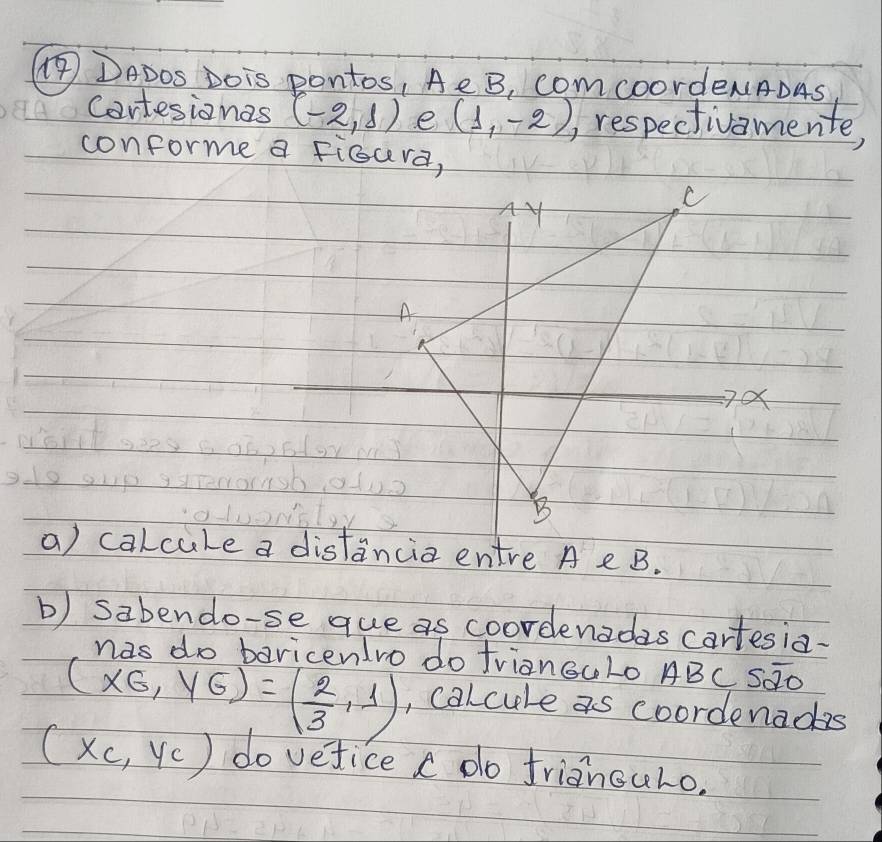 17) DADOS Dois pontos, A e B, com coordeNADAS
cartesianas (-2,1) e (1,-2), respectivamente,
conforme a FiGura,
Y
C
A
x
B
a) calcule a distância entre A e B.
b) sabendo-se que as coordenadas cartesia-
nas do baricentro do trianGuLo ABC são
(XG, YG) = (2/3, 1), calcule as coordenadas
(xc, yc) do vétice c do triânGuLo.